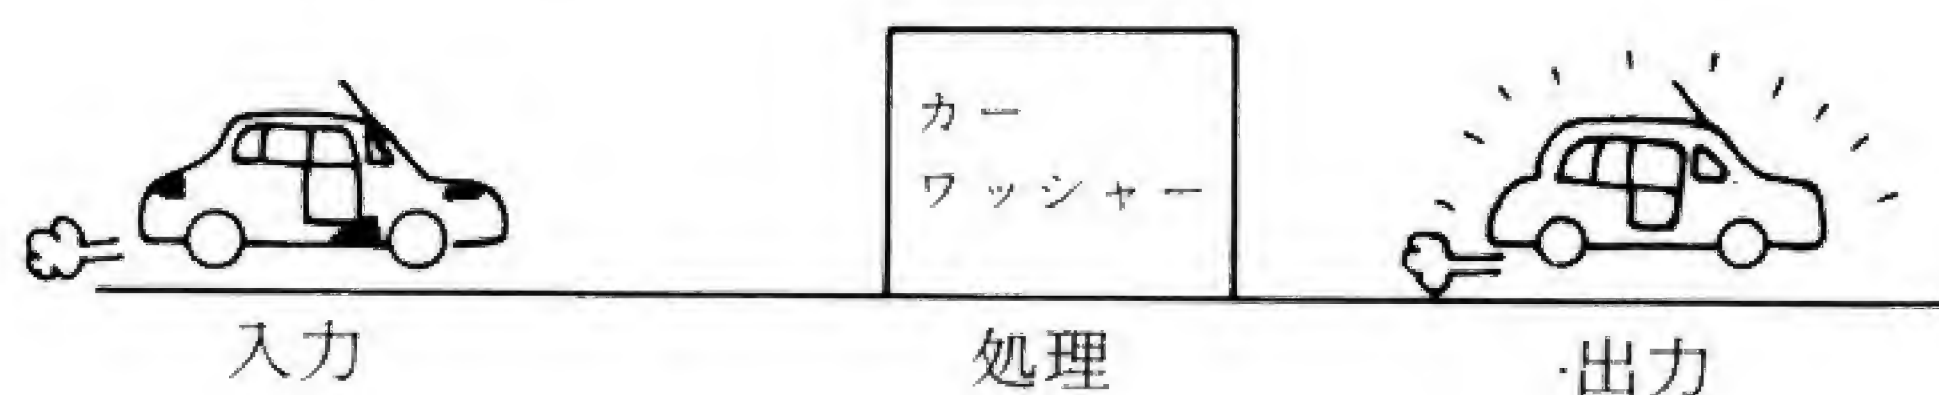 カー
ワッシャー
入力
処理
出力